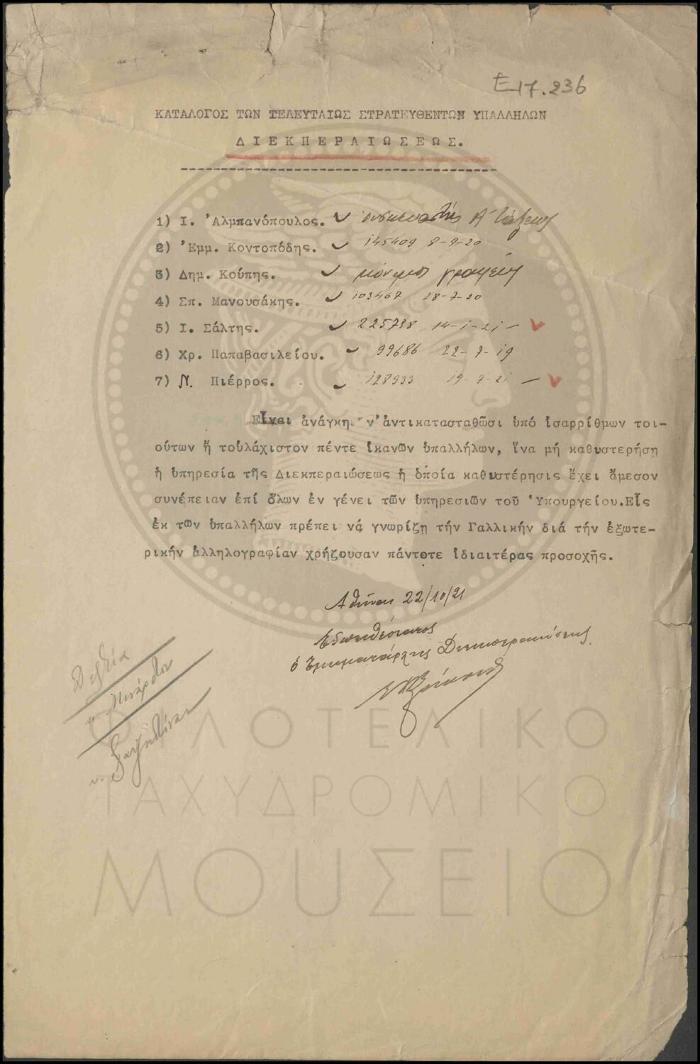 Ε17.236
ΚΑΤΑΛΟΓΟΣ ΤΩΝ ΤΕΛΕΥΤΑΙΩΣ ΣΤΡΑΤΕΥΘΕΝΤΩΝ ΥΠΑΛΛΗΛΩΝ
ΔΙΕΚΠΕΡΑΙΩΣΕΩΣ.
1) Ι. Ἀλμπανόπουλος. Α΄ τάξεως
2) Ἐμμ. Κοντοπόδης. 145409 8-9-20
3) Δημ. Κούπης. μόνιμος γραφεύς
4) Σπ. Μανουσάκης. 103467 28-7-20
5) Ι. Σάλτης. 225738 14-1-21
6) Χρ. Παπαβασιλείου. 99686 22-7-19
7) Ν. Πιέρρος. 128933 19-7-21
Εἶναι ἀνάγκη ν'ἀντικατασταθῶσι ὑπό ἰσαρρίθμων τοι-
ούτων ἤ τοὐλάχιστον πέντε ἱκανῶν ὑπαλλήλων, ἵνα μή καθυστερήση
ἡ ὑπηρεσία τῆς Διεκπεραιώσεως ἡ ὁποία καθυστέρησις ἔχει ἄμεσον
συνέπειαν ἐπί ὅλων ἐν γένει τῶν ὑπηρεσιῶν τοῦ Ὑπουργείου.Εἷς
ἐκ τῶν ὑπαλλήλων πρέπει νά γνωρίζη τήν Γαλλικήν διά τήν ἐξωτε-
ρικήν ἀλληλογραφίαν χρήζουσαν πάντοτε ἰδιαιτέρας προσοχῆς.
Ἀθῆναι 22/10/21
Εὐπειθέστατος
ὁ Τμηματάρχης Διεκπεραιώσεως
ΦΙΛΟΤΕΛΙΚΟ
ΤΑΧΥΔΡΟΜΙΚΟ
ΜΟΥΣΕΙΟ